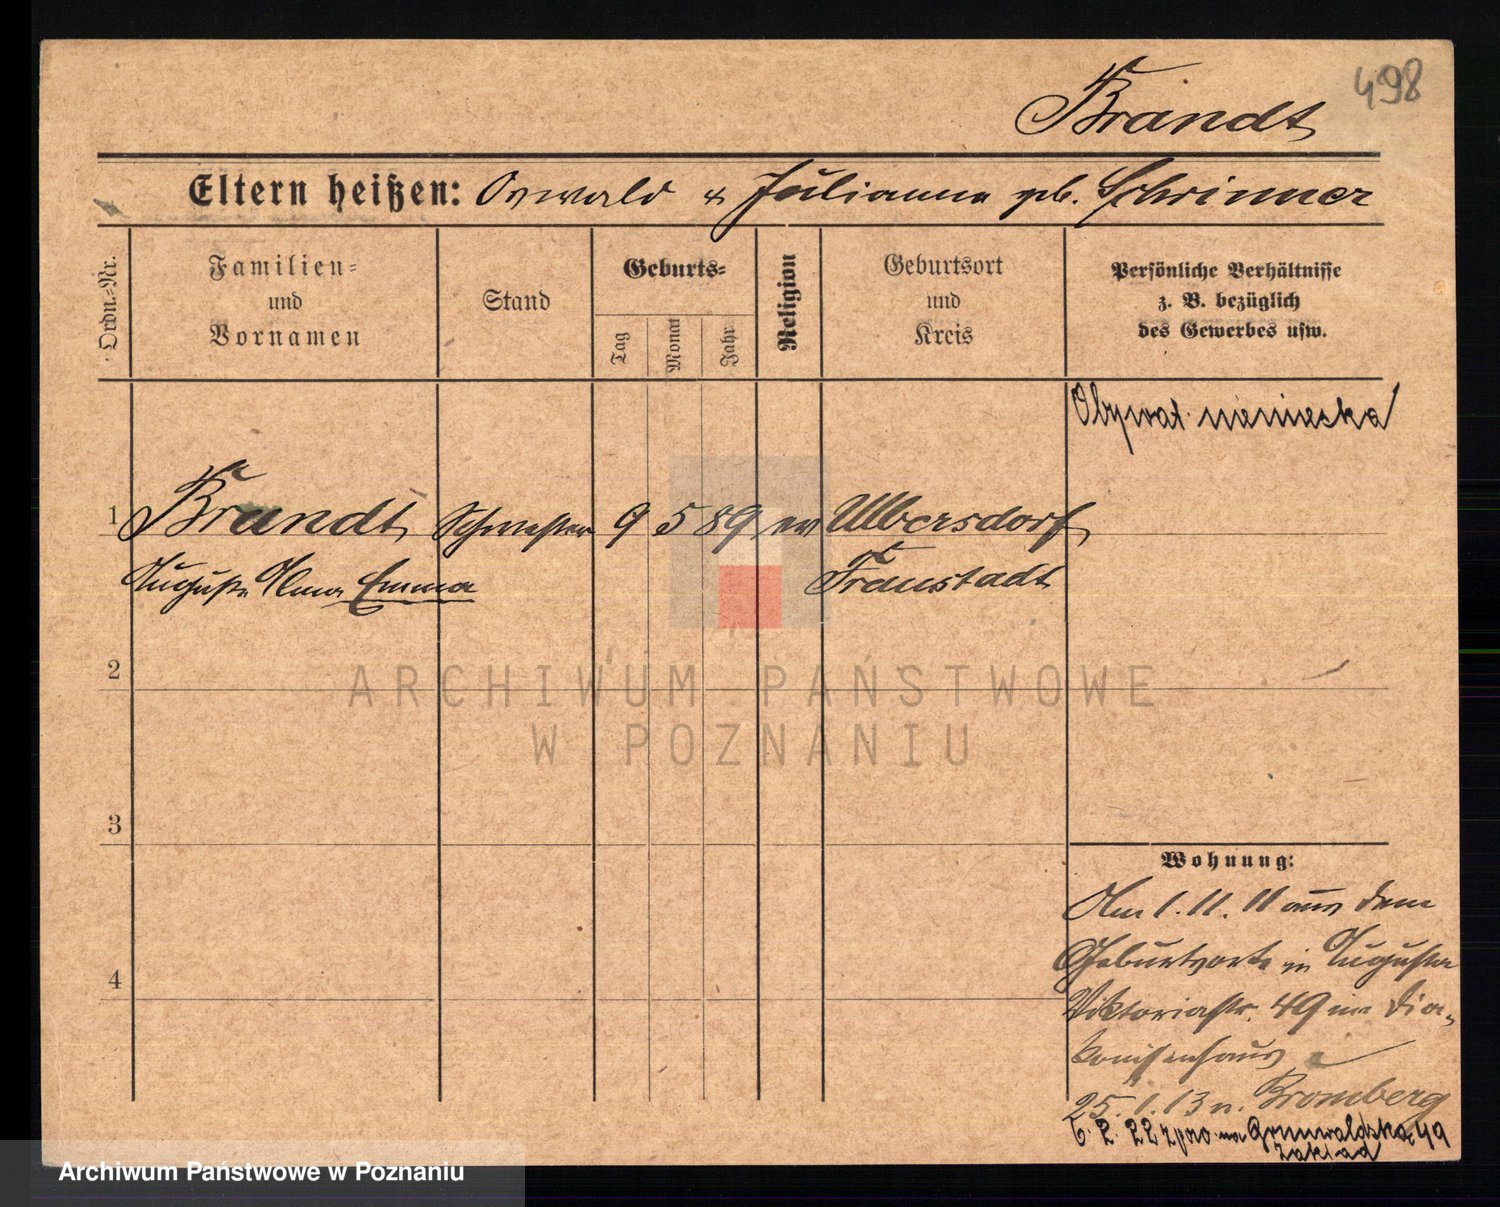 498
Brandt
Eltern heißen: Oswald & Julianna geb. Schirmer
Ordn.-Nr.
Familien-
und
Vornamen
Stand
Geburts-
Tag
Monat
Jahr
Religion
Geburtsort
und
Kreis
Persönliche Verhältnisse
z. B. bezüglich
des Gewerbes usw.
Obywat. niemiecka
1 Brandt Schwester 9 5 89 ev Ulbersdorf
Auguste Alma Emma Fraustadt
2
3
4
Wohnung:
Am 1. 11. 11 aus dem
Geburtsorte in Augusta
Viktoriastr. 49 im Dia-
konissenhaus
25. 1. 13 n. Bromberg
6. 2. 22 zpro. na Grunwaldska 49
zakład
ARCHIWUM PAŃSTWOWE
W POZNANIU
Archiwum Państwowe w Poznaniu